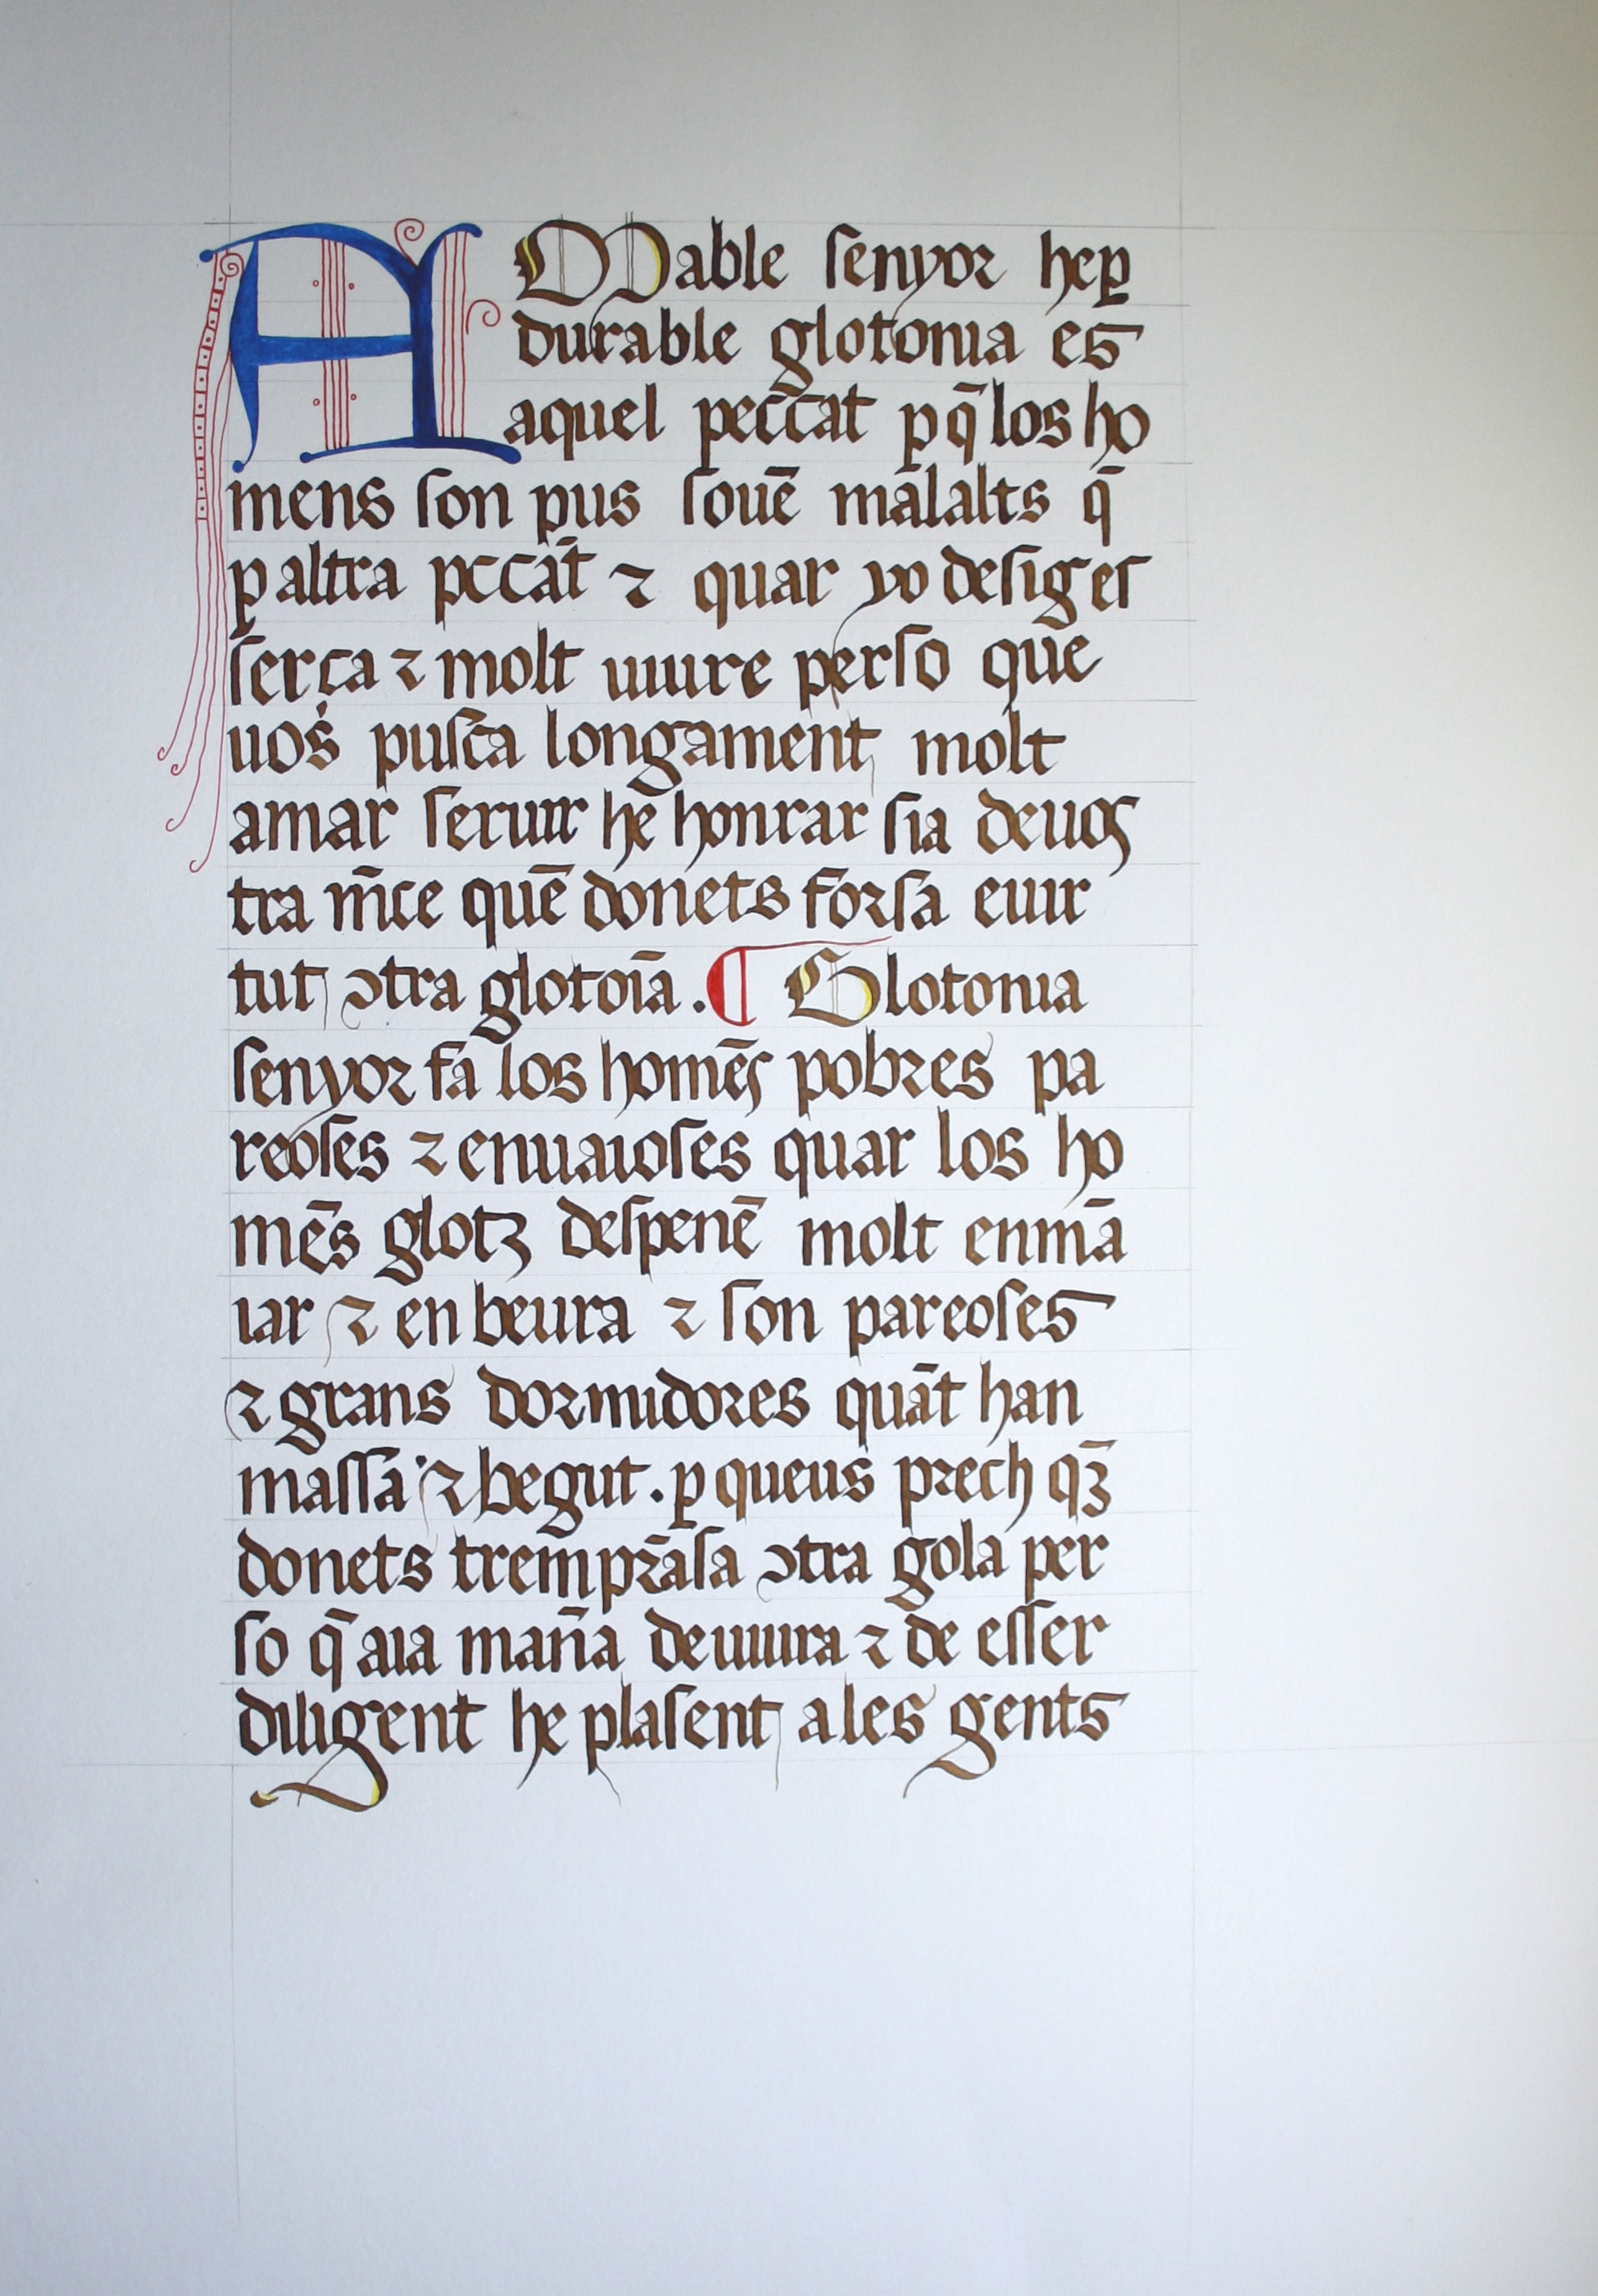 AMable senyor hep
durable glotonia es
aquel peccat p q̄ los ho
mens son pus souē malalts q̄
p altra pccat̄ ⁊ quar yo desig es
serca ⁊ molt uiure perso que
uos pusca longament molt
amar seruir hē honrar sia deuos
tra m̄ce quē donets forsa euir
tut ↄtra glotoīa . ¶ Glotonia
senyor fa los homēs pobres pa
reoses ⁊ enuaioses quar los ho
mēs glotz despenē molt enmā
iar ⁊ en beura ⁊ son pareoses
⁊ grans dormidores quāt han
massa ⁊ begut . p queus prech qʒ̄
donets trem̄prāsa ↄtra gola per
so q̄ aia man̄a deuiura ⁊ de esser
diligent he plasent a les gents